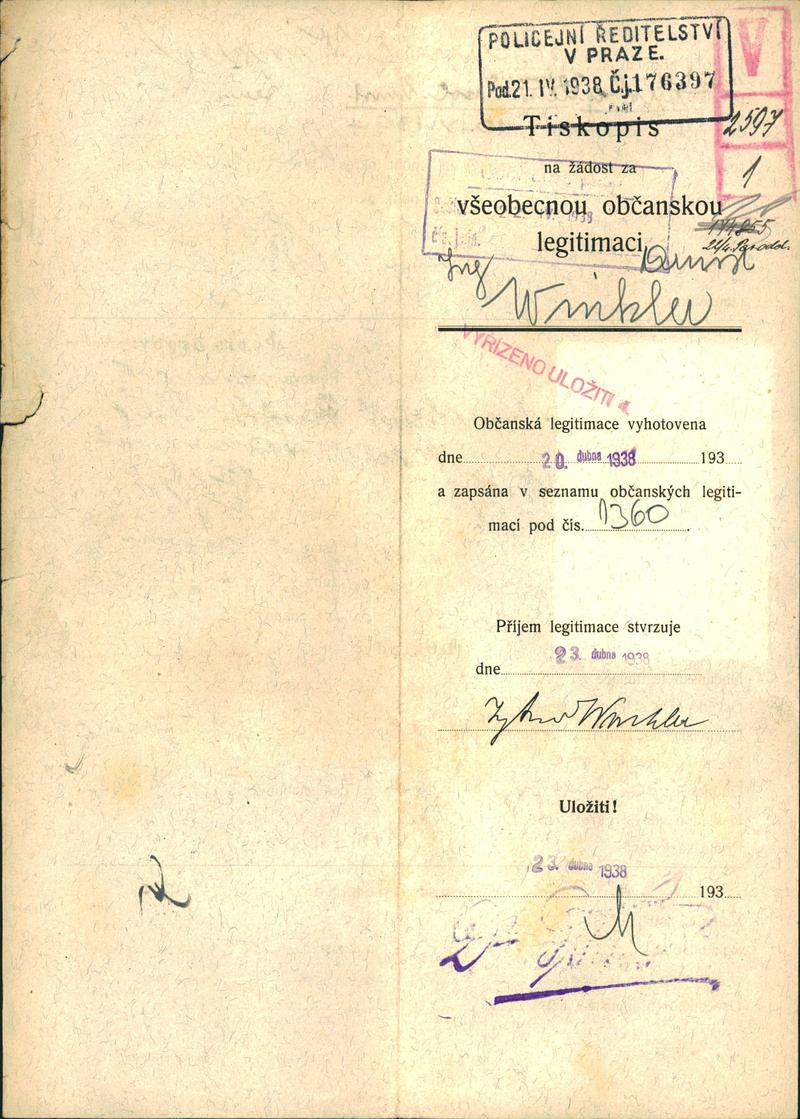 POLICEJNÍ ŘEDITELSTVÍ
V PRAZE.
Pod. 21. IV. 1938 Č.j. 176397
V
2597
1
Tiskopis
na žádost za
všeobecnou občanskou
legitimaci
Ing
Winkler
VYŘÍZENO ULOŽITI
Občanská legitimace vyhotovena
dne 20. dubna 1938 193
a zapsána v seznamu občanských legiti-
mací pod čís. 1360.
Příjem legitimace stvrzuje
23. dubna 1938
dne
Winkler
Uložiti!
23. dubna 1938
193